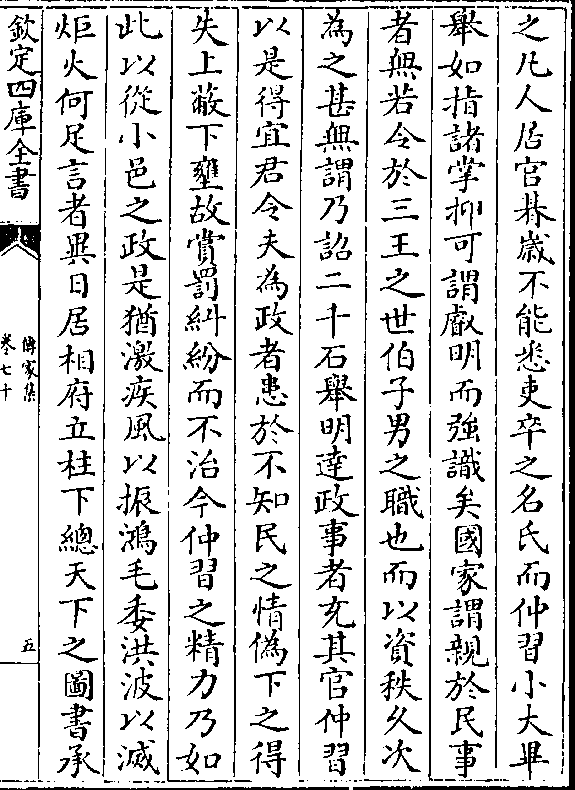 之凡人居官朞歲不能悉吏卒之名氏而仲習小大畢
舉如指諸掌抑可謂叡明而強識矣國家謂親於民事
者無若令於三王之世伯子男之職也而以資秩久次
為之甚無謂乃詔二千石舉明達政事者充其官仲習
以是得宜君令夫為政者患於不知民之情偽下之得
失上蔽下壅故賞罰糾紛而不治今仲習之精力乃如
此以從小邑之政是猶激疾風以振鴻毛委洪波以滅
炬火何足言者異日居相府立柱下總天下之圖書承
欽定四庫全書
傳家集
卷七十
五